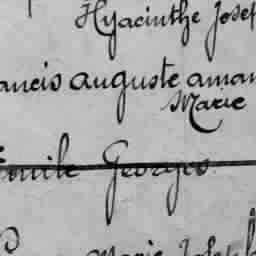 Hyacinthe Josep
ancis auguste aman
Marie
Emile Georges
Marie Joseph